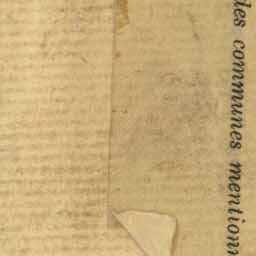 des communes mentionn